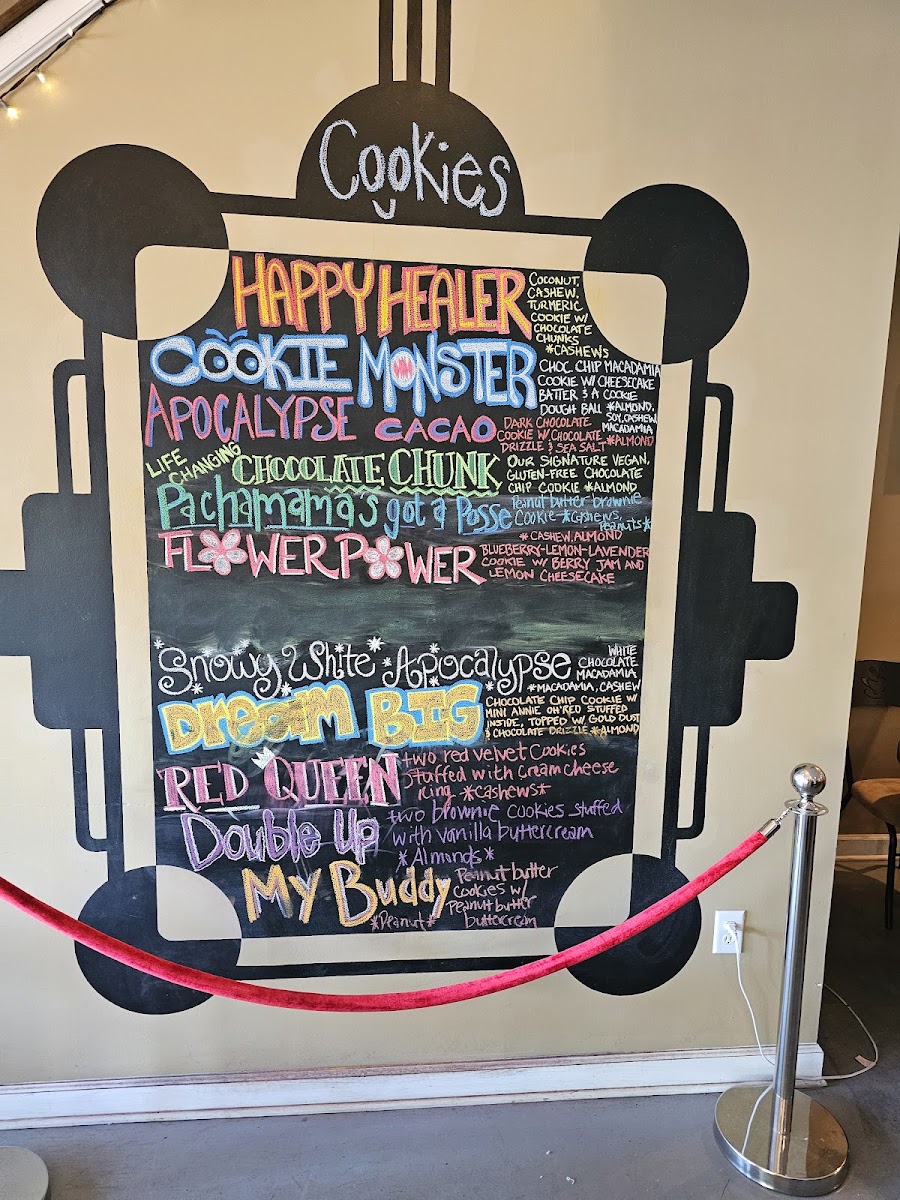 Cookies
HAPPY HEALER
COCONUT,
CASHEW,
TURMERIC
COOKIE W/
CHOCOLATE
CHUNKS
*CASHEWS
COOKIE MONSTER
CHOC CHIP MACADAMIA
COOKIE W/ CHEESECAKE
BATTER & A COOKIE
DOUGH BALL *ALMOND,
SOY, CASHEW,
MACADAMIA
APOCALYPSE CACAO
DARK CHOCOLATE
COOKIE W/ CHOCOLATE
DRIZZLE & SEA SALT *ALMOND
LIFE
CHANGING
CHOCOLATE CHUNK
OUR SIGNATURE VEGAN,
GLUTEN-FREE CHOCOLATE
CHIP COOKIE *ALMOND
Pachamama's got a Posse
Peanut butter brownie
Cookie *Cashews,
Peanuts*
FLOWER POWER
*CASHEW, ALMOND
BLUEBERRY-LEMON-LAVENDER
COOKIE W/ BERRY JAM AND
LEMON CHEESECAKE
Snowy White Apocalypse
WHITE
CHOCOLATE
MACADAMIA
*MACADAMIA, CASHEW
Dream BIG
CHOCOLATE CHIP COOKIE W/
MINI ANNIE OH'RED STUFFED
INSIDE, TOPPED W/ GOLD DUST
& CHOCOLATE DRIZZLE *ALMOND
RED QUEEN
two red velvet cookies
stuffed with cream cheese
icing *cashews*
Double Up
two brownie cookies stuffed
with vanilla buttercream
*Almonds*
My Buddy
Peanut butter
cookies w/
Peanut butter
buttercream
*Peanut*